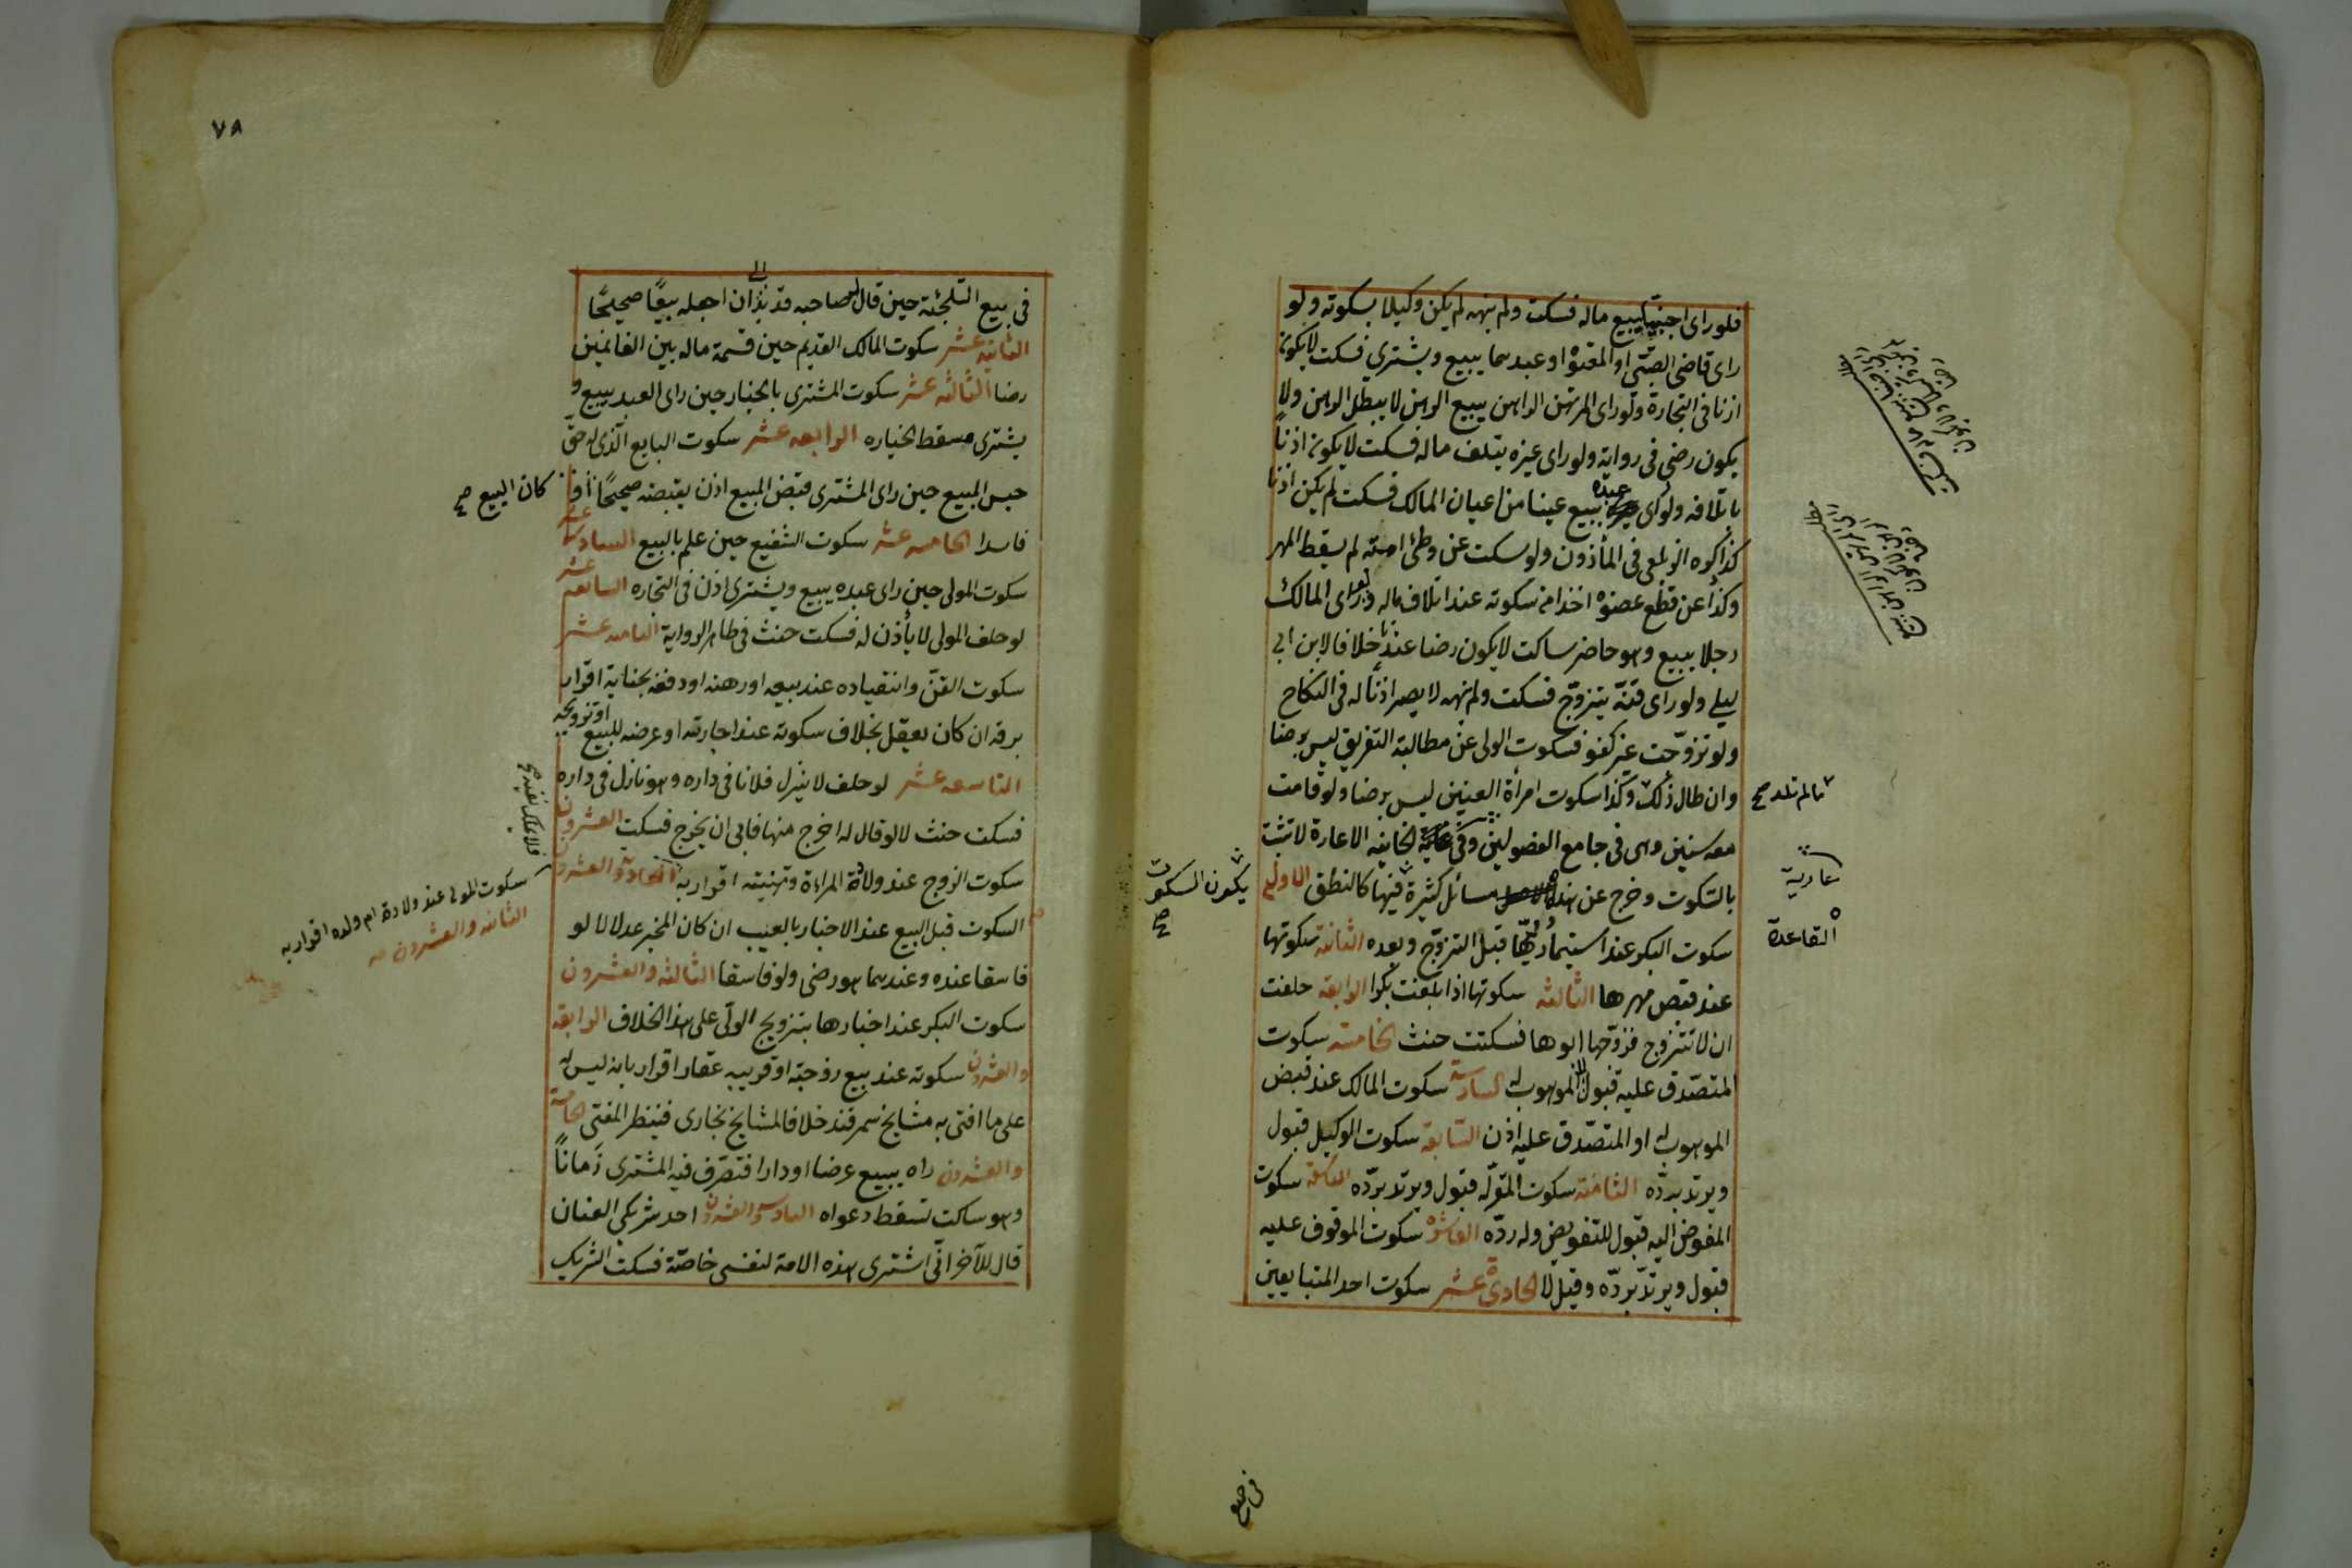 فلو راى اجنبيا يبيع ماله فسكت ولم ينهه لم يكن وكيلا بسكوته ولو
راى قاضى الصبى او المعتوه او عبدهما يبيع ويشتري فسكت لا يكون
اذنا فى التجارة ولو راى المرتهن الراهن يبيع الرهن لا يبطل الرهن ولا
يكون رضى فى رواية ولو راى غيره يتلف ماله فسكت لا يكون اذنا
باتلافه ولو راى عبده يبيع عينا من اعيان المالك فسكت لم يكن اذنا
كذا ذكره الزيلعى فى المأذون ولو سكت عن وطئ امته لم يسقط المهر
وكذا عن قطع عضوه اخذا من سكوته عند اتلاف ماله ولو راى المالك
رجلا يبيع وهو حاضر ساكت لا يكون رضا عندنا خلافا لابن ابى
ليلى ولو راى قنه يتزوج فسكت ولم ينهه لا يصير اذنا له فى النكاح
ولو تزوجت غير كفو فسكوت الولى عن مطالبة التفريق ليس برضا
وان طال ذلك وكذا سكوت امرأة العنين ليس برضا ولو قامت
ما لم تلد صح
معه سنين وهى فى جامع الفصولين وفى الخانيه الاعارة لا تثبت
عمادية
بالسكوت وخرج عن هذه مسائل كثيرة فيها كالنطق الاولى
القاعدة
يكون السكوت صح
سكوت البكر عند استيمار وليها قبل التزوج وبعده الثانية سكوتها
عند قبض مهرها الثالثه سكوتها اذا بلغت بكرا الرابعه حلفت
ان لا تتزوج فزوجها ابوها فسكتت حنث الخامسه سكوت
المتصدق عليه قبول لا الموهوب له السادسة سكوت المالك عند قبض
الموهوب له او المتصدق عليه اذن السابعه سكوت الوكيل قبول
ويرتد برده الثامنه سكوت المقر له قبول ويرتد برده التاسعة سكوت
المفوض اليه قبول للتفويض وله رده العاشره سكوت الموقوف عليه
قبول ويرتد برده وقيل لا الحادية عشر سكوت احد المتبايعين
فى بيع
٧٨
فى بيع التلجئه حين قال لصاحبه قد بدا لى ان اجعله بيعا صحيحا
الثانيه عشر سكوت المالك القديم حين قسمة ماله بين الغانمين
رضا الثالثه عشر سكوت المشترى بالخيار حين راى العبد يبيع و
يشترى مسقط لخياره الرابعه عشر سكوت البايع الذى له حق
حبس المبيع حين راى المشترى قبض المبيع اذن بقبضه صحيحا او
كان البيع صح
فاسدا الخامسه عشر سكوت الشفيع حين علم بالبيع السادسه عشر
سكوت المولى حين راى عبده يبيع ويشترى اذن فى التجاره السابعه عشر
لو حلف المولى لا يأذن له فسكت حنث فى ظاهر الرواية الثامنه عشر
سكوت القن وانقياده عند بيعه او رهنه او دفعه بجناية اقرار
برقه ان كان يعقل بخلاف سكوته عند اجارته او عرضه للبيع او تزويجه
التاسعه عشر لو حلف لا ينزل فلانا فى داره وهو نازل فى داره
فسكت حنث لا لو قال له اخرج منها فابى ان يخرج فسكت العشرون
سكوت الزوج عند ولادة المراءة وتهنيته اقرار به الحادية والعشرون
سكوت المولى عند ولادة ام ولده اقرار به
الثانيه والعشرون صح
السكوت قبل البيع عند الاخبار بالعيب ان كان المخبر عدلا لا لو
فاسقا عنده وعندهما هو رضى ولو فاسقا الثالثه والعشرون
سكوت البكر عند اخبارها بتزويج الولى على هذا الخلاف الرابعه
والعشرون سكوته عند بيع زوجته او قريبه عقارا اقرار بانه ليس له
على ما افتى به مشايخ سمرقند خلافا لمشايخ بخارى فينظر المفتى الخامسة
والعشرون راه يبيع عرضا او دارا فتصرف فيه المشترى زمانا
وهو ساكت تسقط دعواه السادس والعشرون احد شريكى العنان
قال للآخر انى اشترى هذه الامة لنفسى خاصة فسكت الشريك